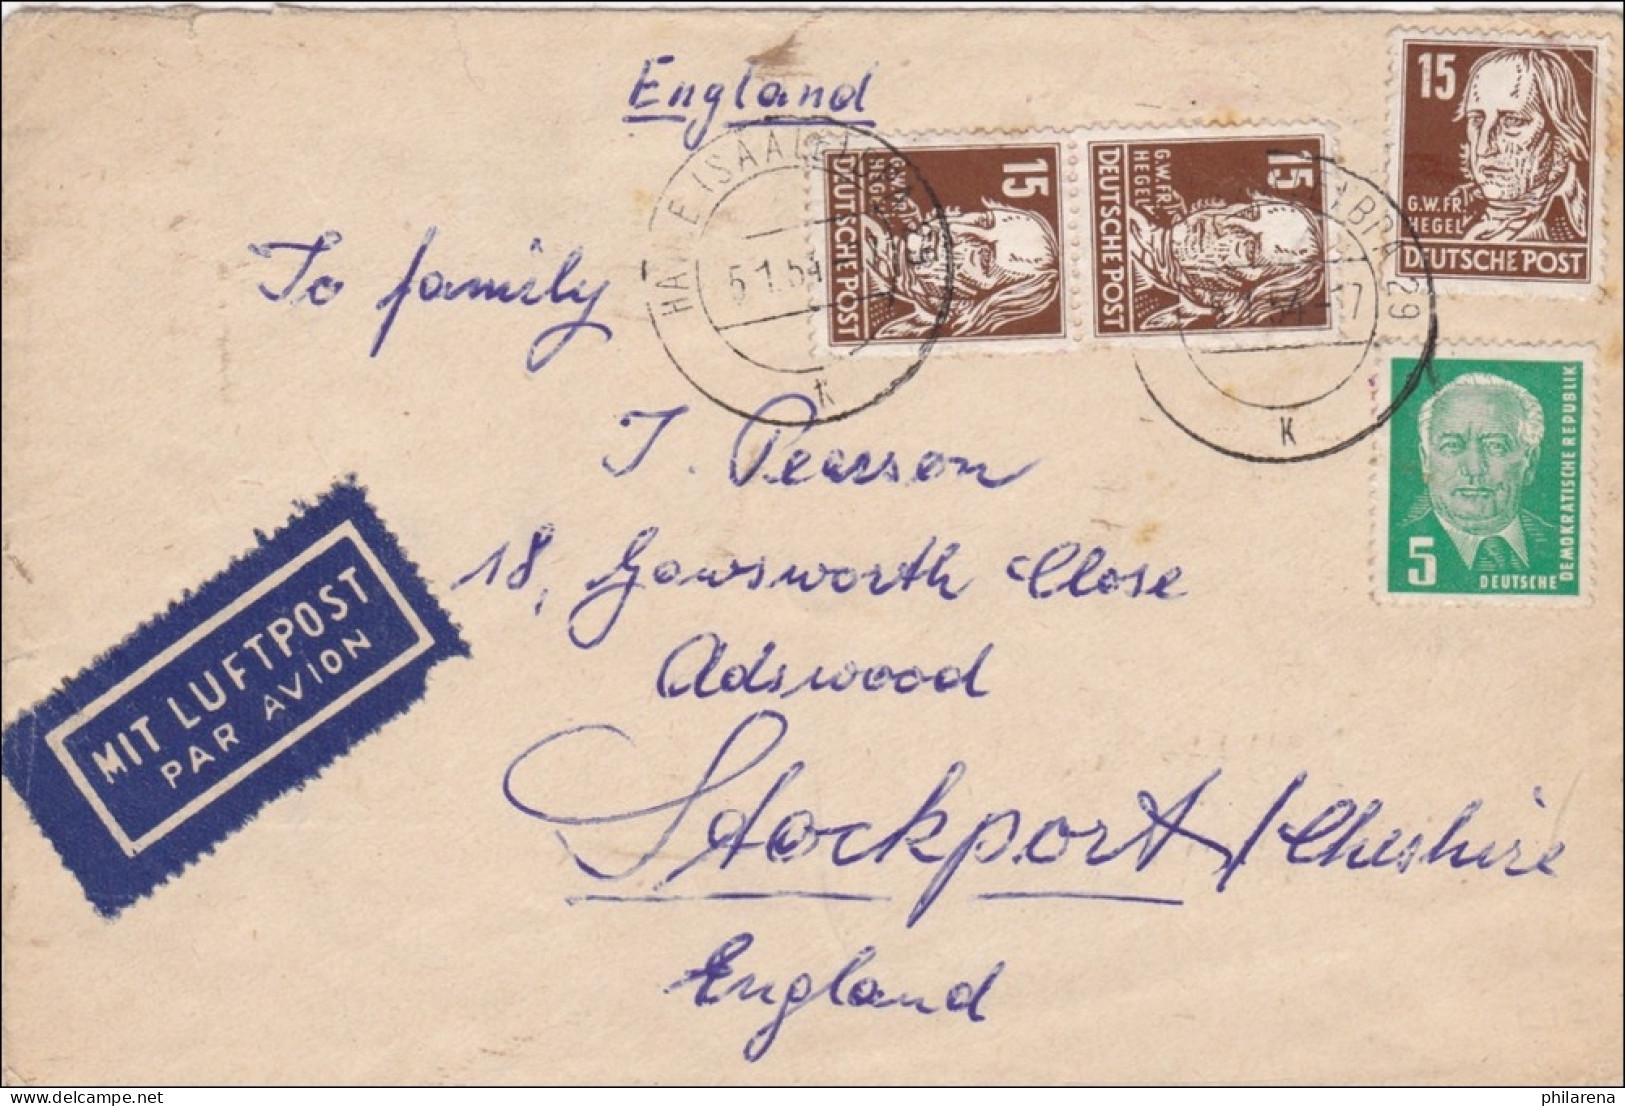 England
To family
J. Pearson
18, Gawsworth Close
Adswood
Stockport / Cheshire
England
MIT LUFTPOST
PAR AVION
15
G.W.FR.
HEGEL
DEUTSCHE POST
15
G.W.FR.
HEGEL
DEUTSCHE POST
15
G.W.FR.
HEGEL
DEUTSCHE POST
5
DEUTSCHE
DEMOKRATISCHE REPUBLIK
5.1.54
K
29
K
hit-der.com philarena